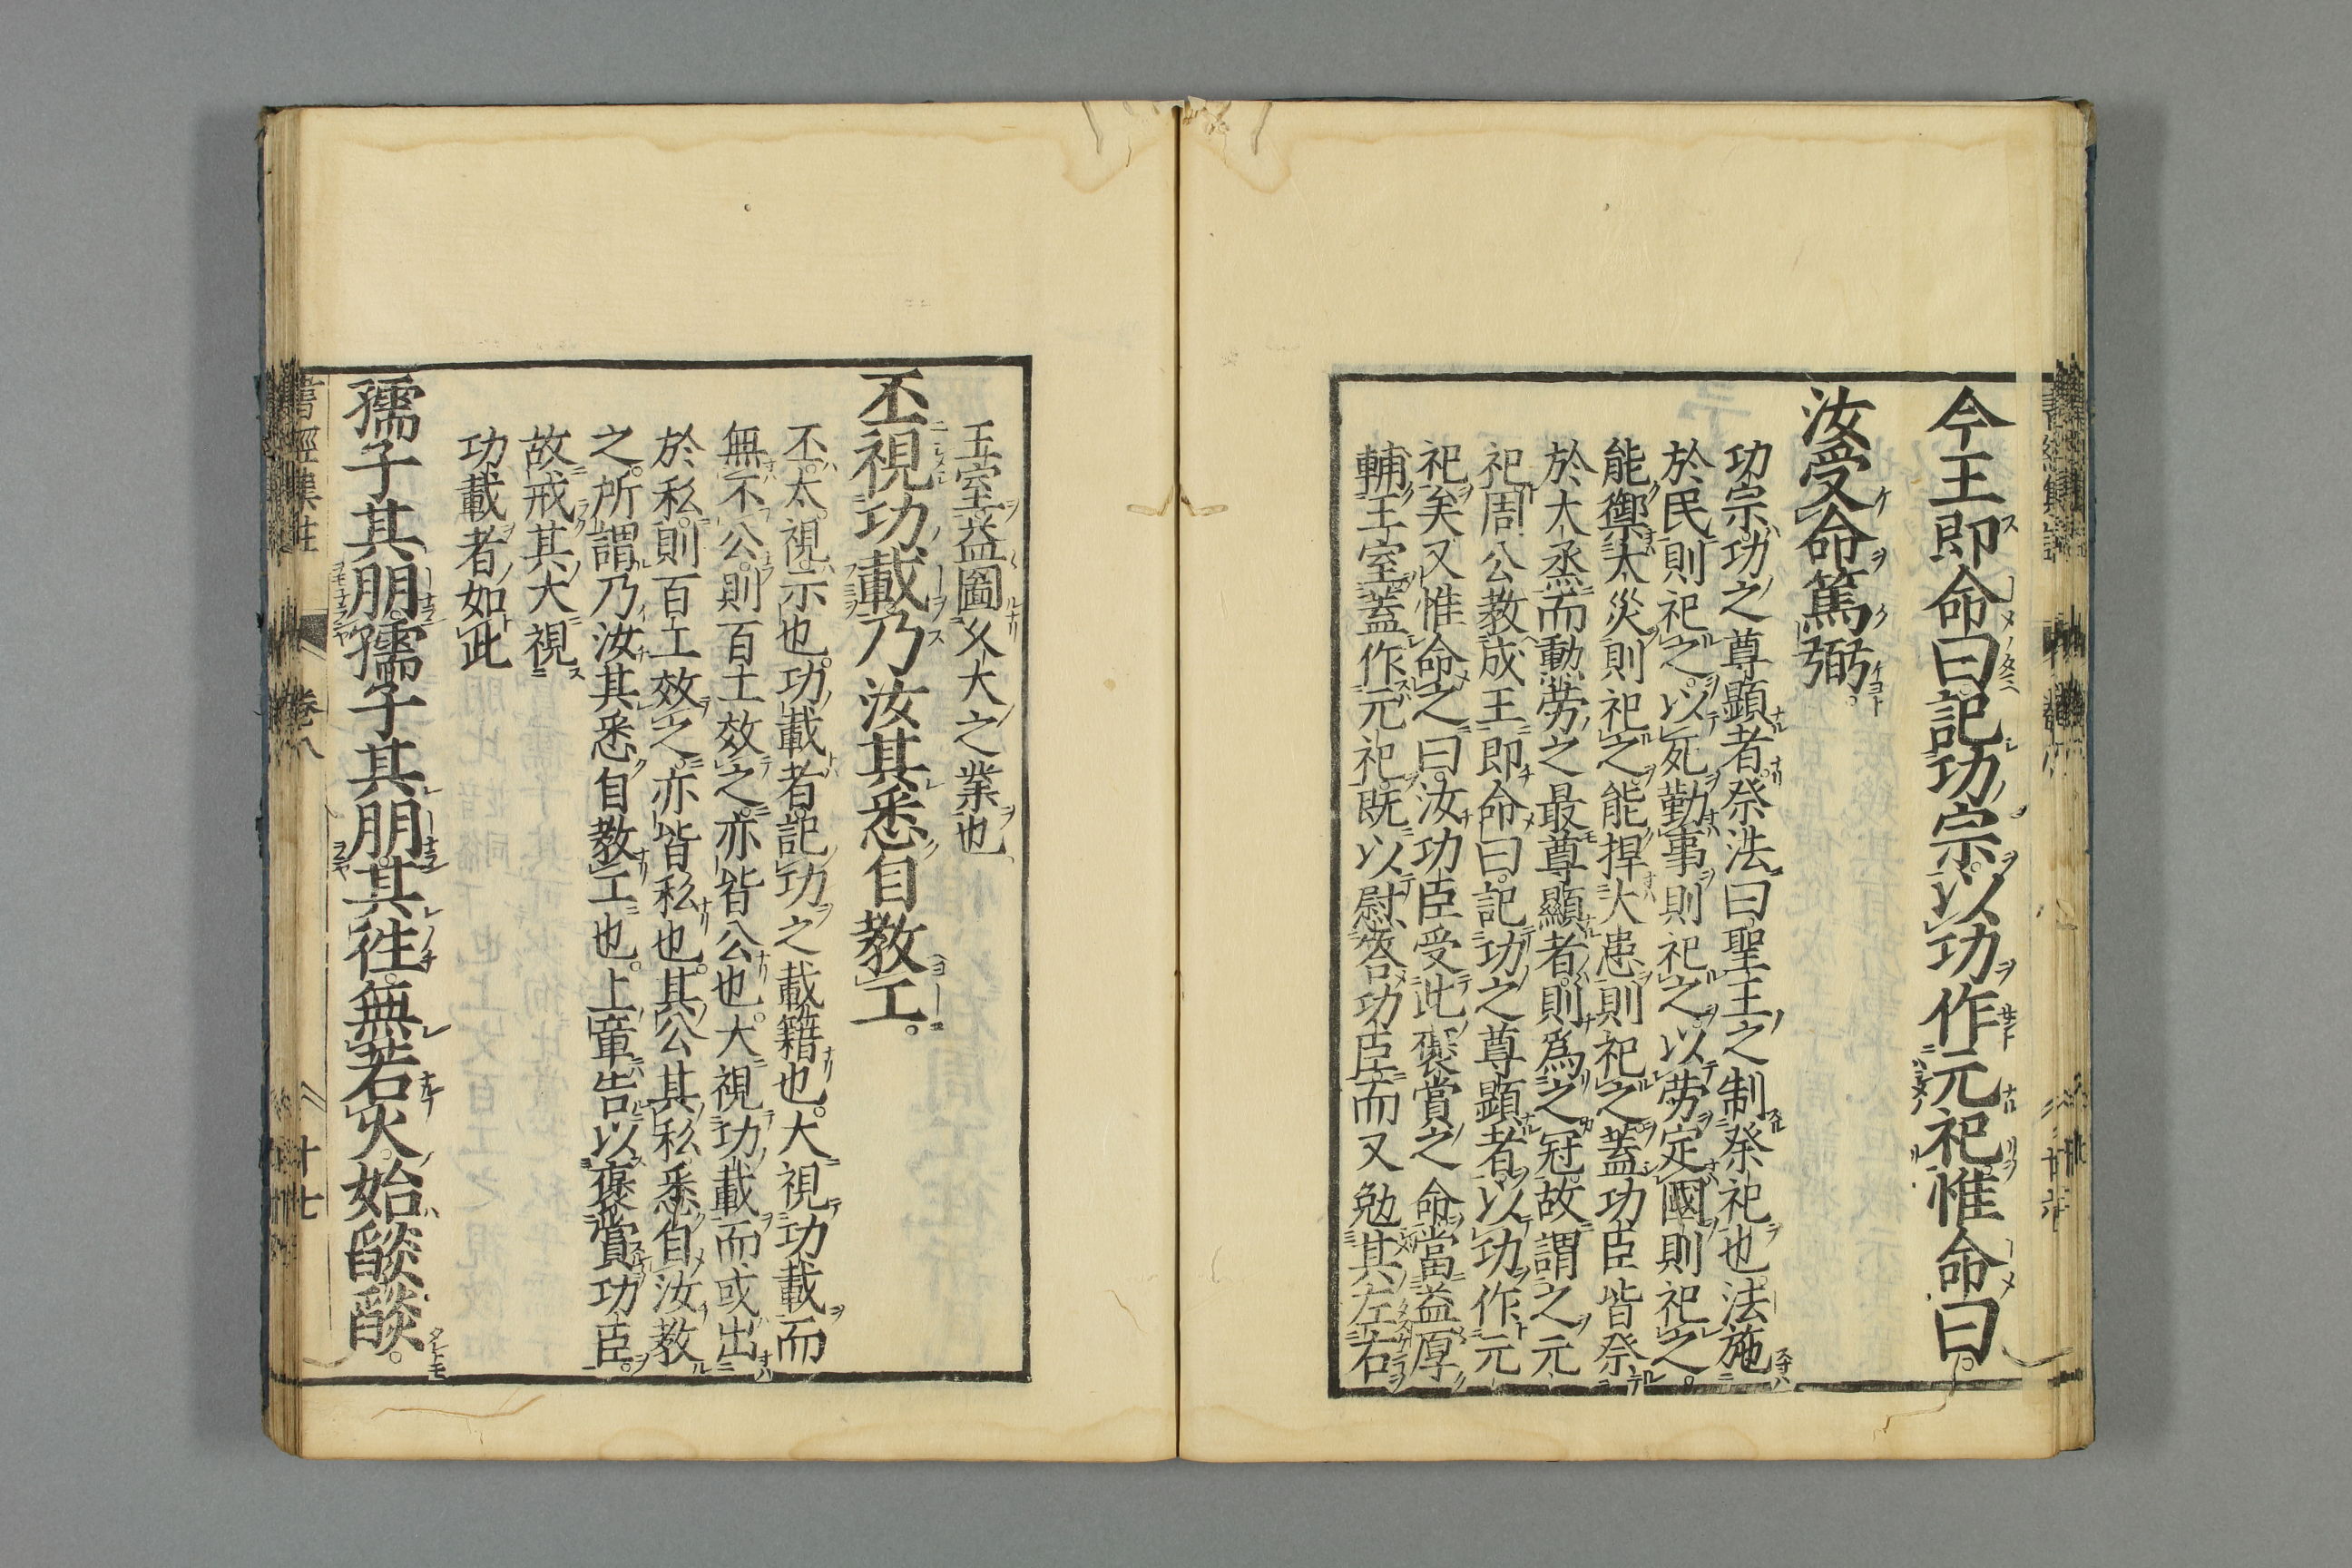 今王即命曰記功宗以功作元祀惟命曰
汝受命篤弼
功宗功之尊顯者祭法曰聖王之制祭祀也法施
於民則祀之以死勤事則祀之以労定國則祀之
能禦大災則祀之能捍大患則祀之蓋功臣皆祭
於大烝而勲労之最尊顯者則爲之冠故謂之元
祀周公教成王即命曰記功之尊顕者以功作元
祀矣又惟命之曰汝功臣受此褒賞之命當益厚
輔王室蓋作元祀既以慰答功臣而又勉其左右
王室益圖久大之業也
丕視功載乃汝其悉自教工
丕大視示也功載者記功之載籍也大視功載而
無不公則百工效之亦皆公也大視功載而或出
於私則百工效之亦皆私也其公其私悉自汝教
之所謂乃汝其悉自教工也上章告以褒賞功臣
故戒其大視
功載者如此
孺子其朋孺子其朋其往無若火始燄燄
書經集註 卷八 十七